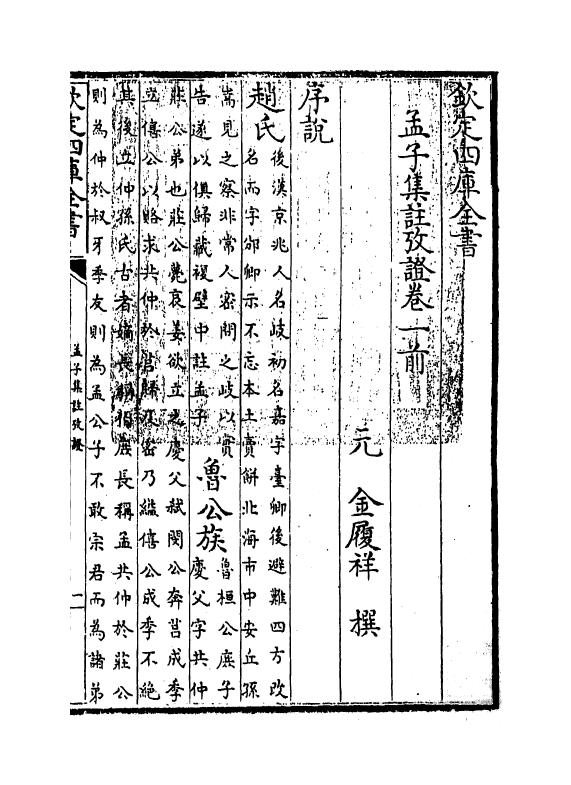 欽定四庫全書
孟子集註攷證卷一前
元 金履祥 撰
序說
趙氏後漢京兆人名岐初名嘉字臺卿後避難四方改
名而字邠卿示不忘本土賣餅北海市中安丘孫
嵩見之察非常人密問之岐以實
告遂以俱歸藏複壁中註孟子
魯公族魯桓公庶子
慶父字共仲
莊公弟也莊公薨哀姜欲立之慶父弑閔公奔莒成季
立僖公以賂求共仲於莒歸及密乃縊僖公成季不絶
其後立仲孫氏古者嫡長稱伯庶長稱孟共仲於莊公
則為仲於叔牙季友則為孟公子不敢宗君而為諸弟
欽定四庫全書
孟子集註攷證